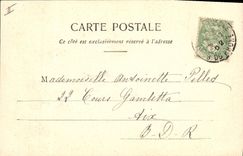 CARTE POSTALE
Ce côté est exclusivement réservé à l'adresse
Mademoiselle Antoinette
22 Cours Gambetta
Aix
B. D. R